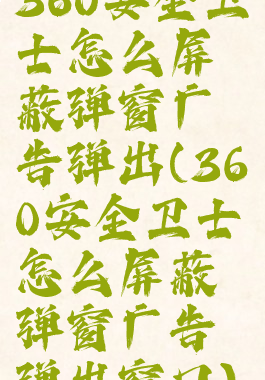 360安全卫
士怎么屏
蔽弹窗广
告弹出(36
0安全卫士
怎么屏蔽
弹窗广告
弹出窗口)